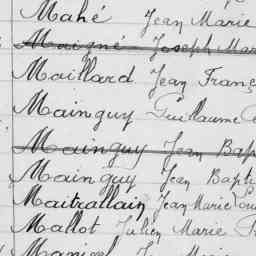 Mahé Jean Marie
Maigné Joseph Mar
Maillard Jean Franç
Mainguy Guillaume
Mainguy Jean Bap
Mainguy Jean Bapti
Maitrallain Jean Marie Lou
Mallot Julien Marie